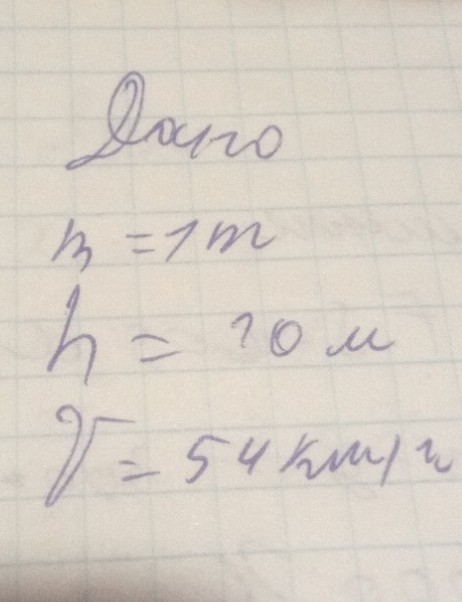 Дано
m = 1 т
h = 10 м
V = 54 км/ч